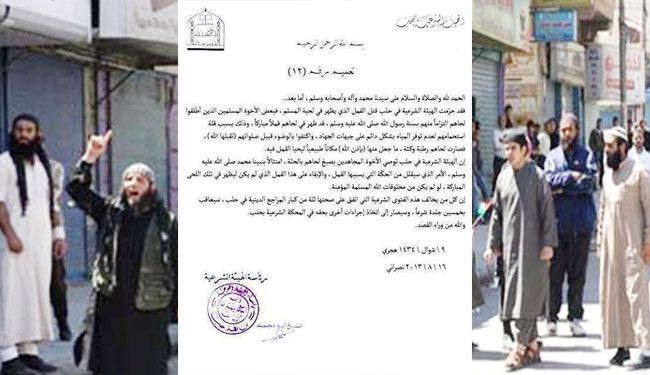 الهيئة الشرعية بحلب
بسم الله الرحمن الرحيم
تعميم رقم (١٢)
الحمد لله والصلاة والسلام على سيدنا محمد وآله وأصحابه وسلم ، أما بعد..
فقد حرّمت الهيئة الشرعية في حلب قتل القمل الذي يظهر في لحية المسلم ، فبعض الأخوة المسلمين الذين أطلقوا
لحاهم التزاماً منهم بسنة رسول الله صلى الله عليه وسلم ، قد ظهر في لحاهم قملاً مباركاً ، وذلك بسبب قلة
استحمامهم لعدم توفر المياه بشكل دائم على جبهات الجهاد ، واكتفوا بالوضوء قبيل صلواتهم (تقبلها الله) ،
فصارت لحاهم رطبة وكثة ، ما جعل منها (بإذن الله) مكاناً طبيعياً ليحيا القمل فيه.
إن الهيئة الشرعية في حلب توصي الأخوة المجاهدين بصبغ لحاهم بالحنّة ، امتثالاً بنبينا محمد صلى الله عليه
وسلم ، الأمر الذي سيقلل من الحكّة التي يسببها القمل ، والإبقاء على هذا القمل الذي لم يكن ليظهر في تلك اللحى
المباركة ، لو لم يكن من مخلوقات الله المسلمة المؤمنة.
إن كل من يخالف هذه الفتوى الشرعية التي اتفق على صحتها ثلة من كبار المراجع الدينية في حلب ، سيعاقب
بخمسين جلدة شرعاً ، وسيصار إلى اتخاذ إجراءات أخرى بحقه في المحكمة الشرعية بحلب.
والله من وراء القصد.
٩ \ شوال \ ١٤٣٤ هجري
١٦ \ ٨ \ ٢٠١٣ نصراني
رئاسة الهيئة الشرعية